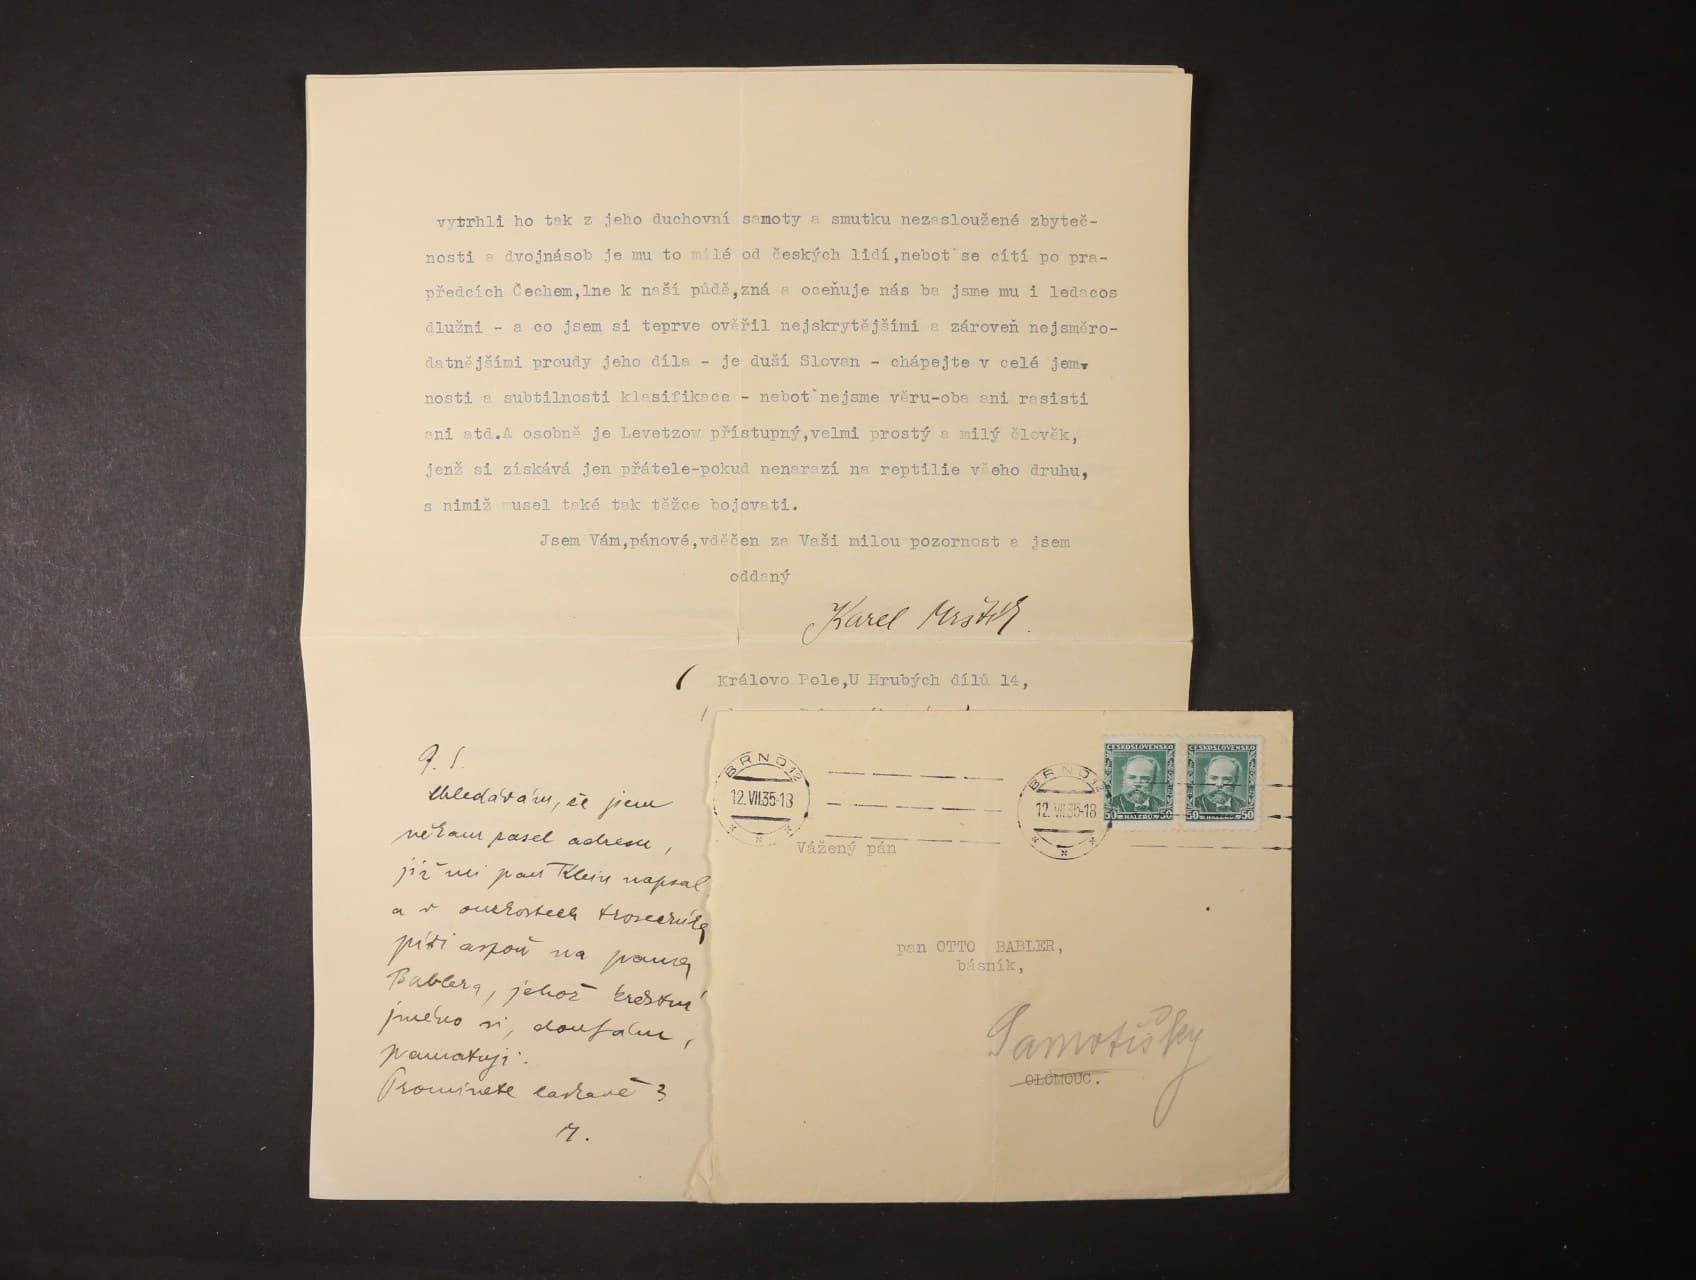 vytrhli ho tak z jeho duchovní samoty a smutku nezasloužené zbyteč-
nosti a dvojnásob je mu to milé od českých lidí,neboť se cítí po pra-
předcích Čechem,lne k naší půdě,zná a oceňuje nás ba jsme mu i ledacos
dlužni - a co jsem si teprve ověřil nejskrytějšími a zároveň nejsměro-
datnějšími proudy jeho díla - je duší Slovan - chápejte v celé jem-
nosti a subtilnosti klasifikace - neboť nejsme věru-oba ani rasisti
ani atd.A osobně je Levetzow přístupný,velmi prostý a milý člověk,
jenž si získává jen přátele-pokud nenarazí na reptilie všeho druhu,
s nimiž musel také tak těžce bojovati.
Jsem Vám,pánové,vděčen za Vaši milou pozornost a jsem
oddaný
Karel Mrštík.
Královo Pole,U Hrubých dílů 14,
P. S.
Shledávám, že jsem
někam zasel adresu,
již mi pan Klein napsal
a v
píši aspoň na pana
Bablera, jehož křestní
jméno si, doufám,
pamatuji.
Prominete laskavě?
M.
BRNO 12
12.VII.35-18
BRNO 12
12.VII.35-18
ČESKOSLOVENSKO
50 HALÉŘŮ 50
ČESKOSLOVENSKO
50 HALÉŘŮ 50
Vážený pán
pan OTTO BABLER,
básník,
Samotišky
OLOMOUC.